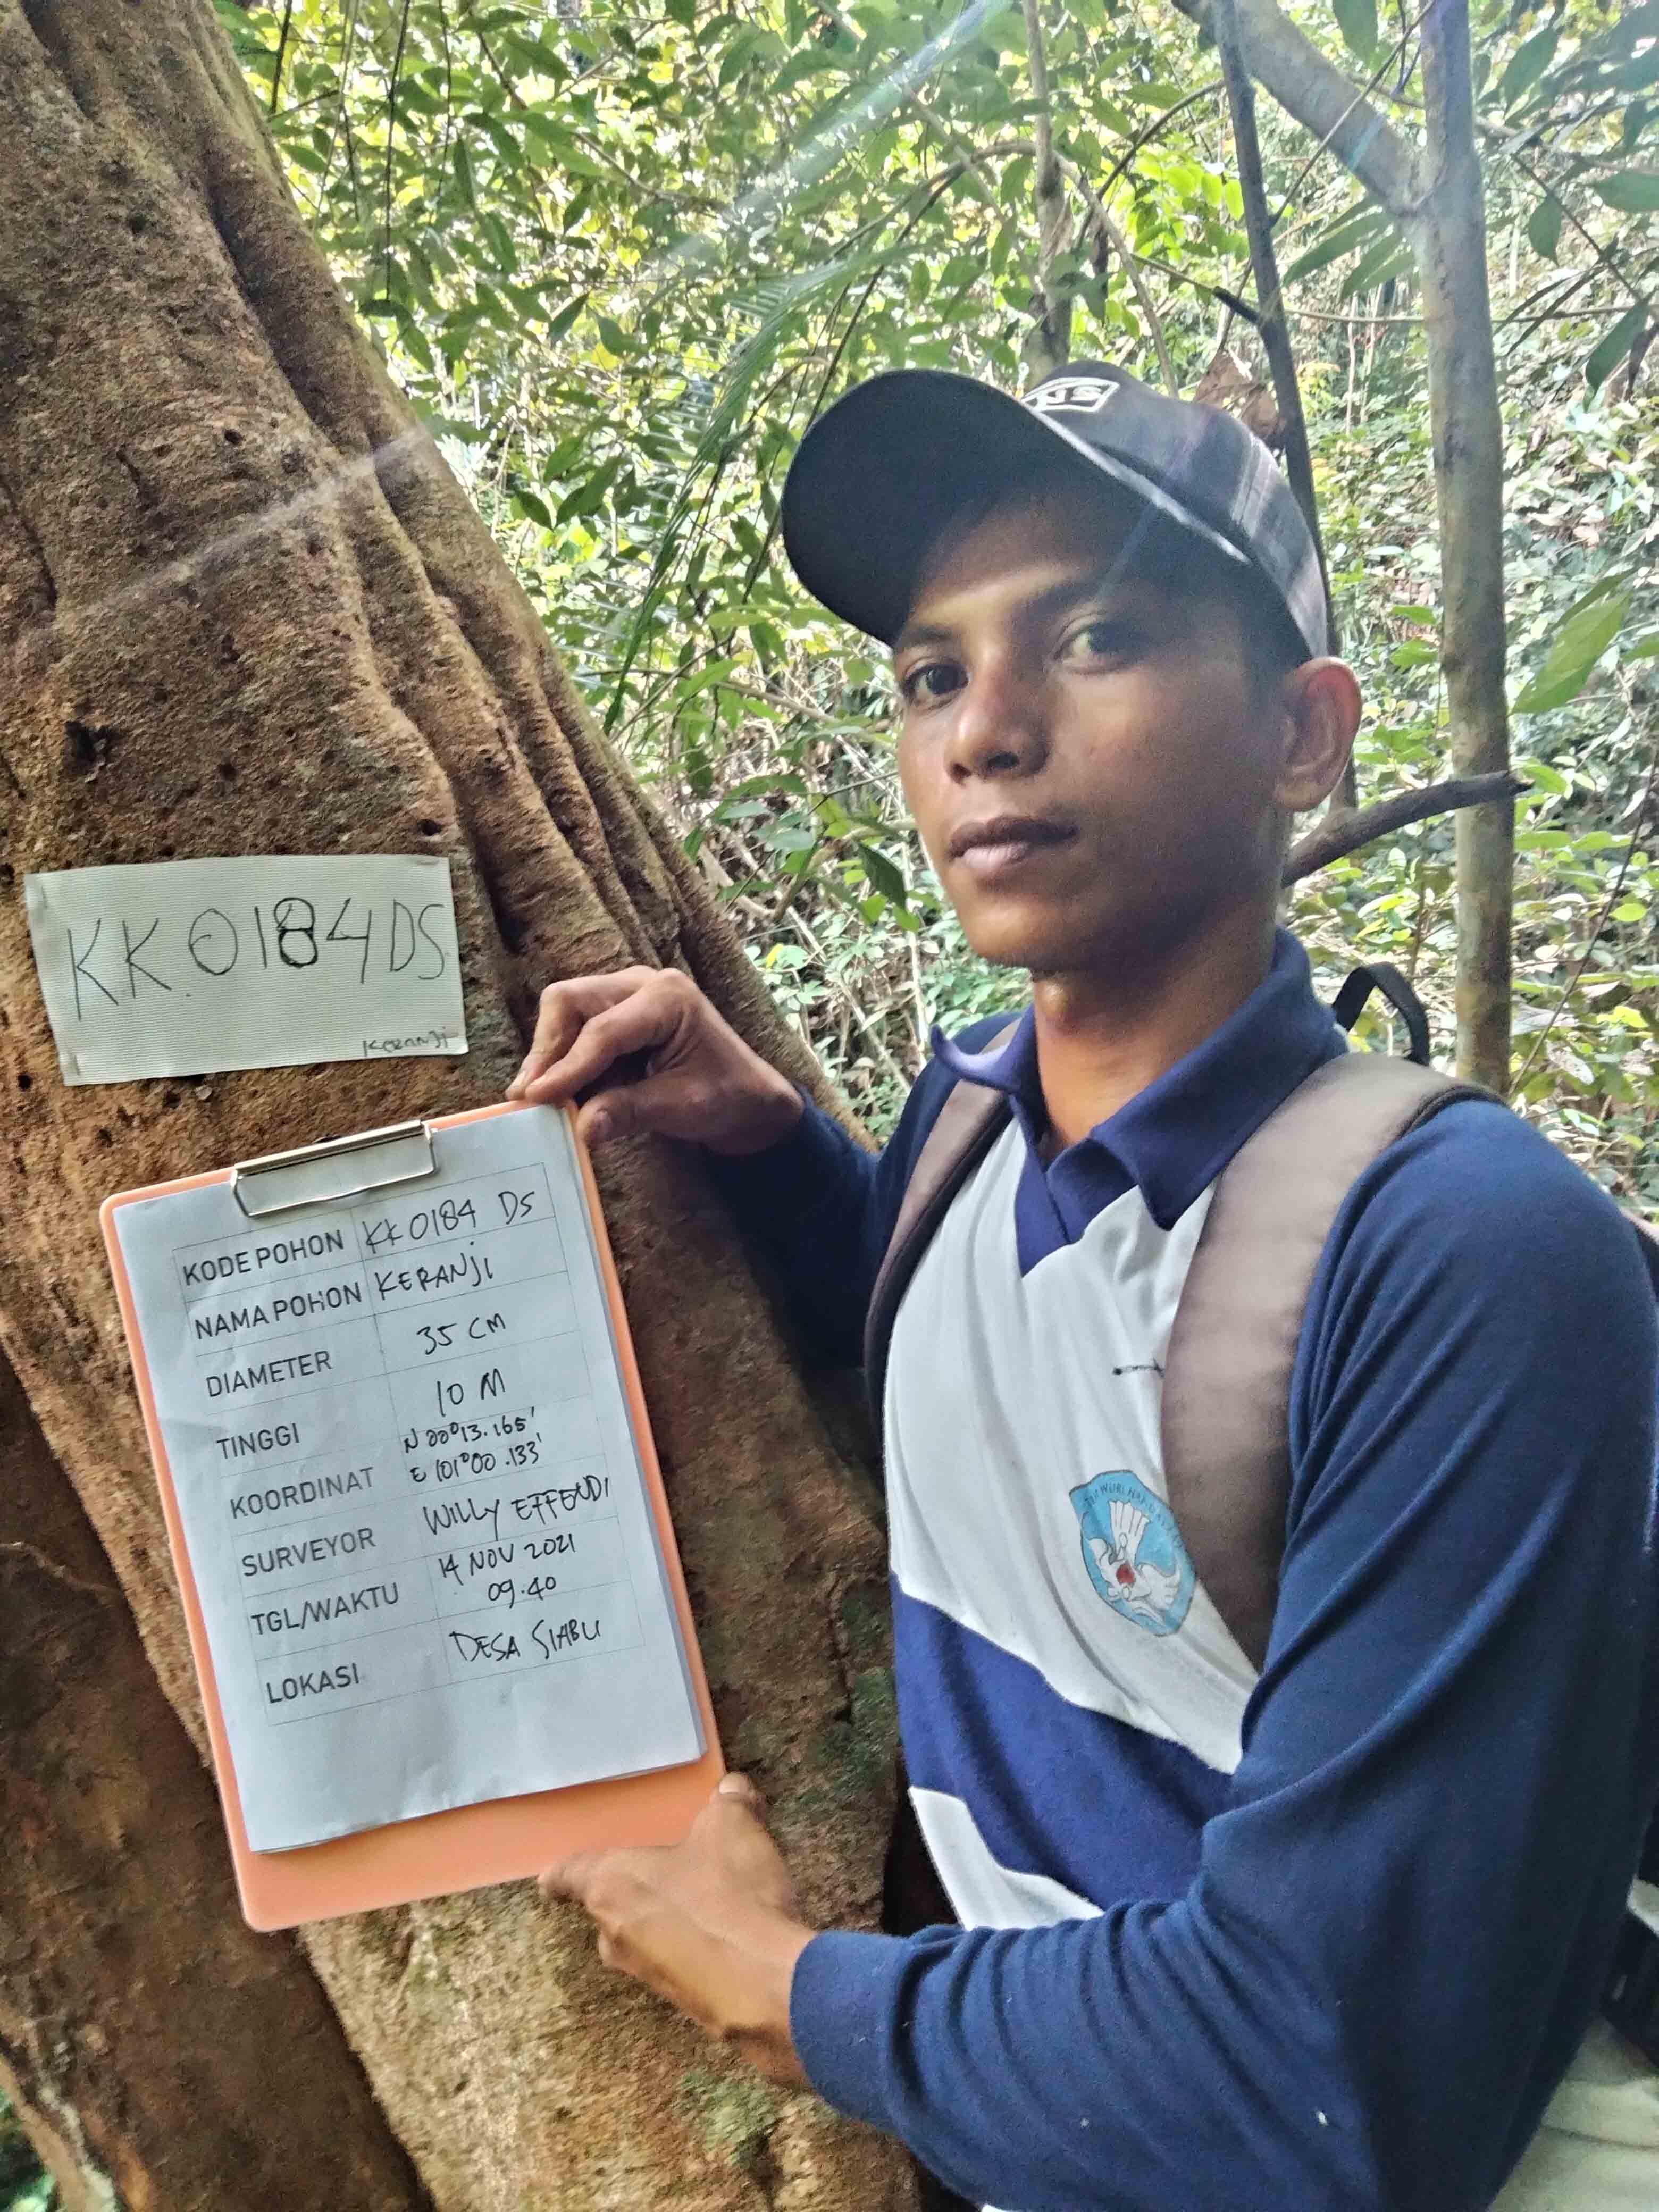 KK0184DS
Keranji
KODE POHON KK0184 DS
NAMA POHON KERANJI
DIAMETER 35 CM
TINGGI 10 M
KOORDINAT N 00°13.165'
E 101°00.133'
SURVEYOR WILLY EFFENDI
TGL/WAKTU 14 NOV 2021
09.40
LOKASI DESA SIABU